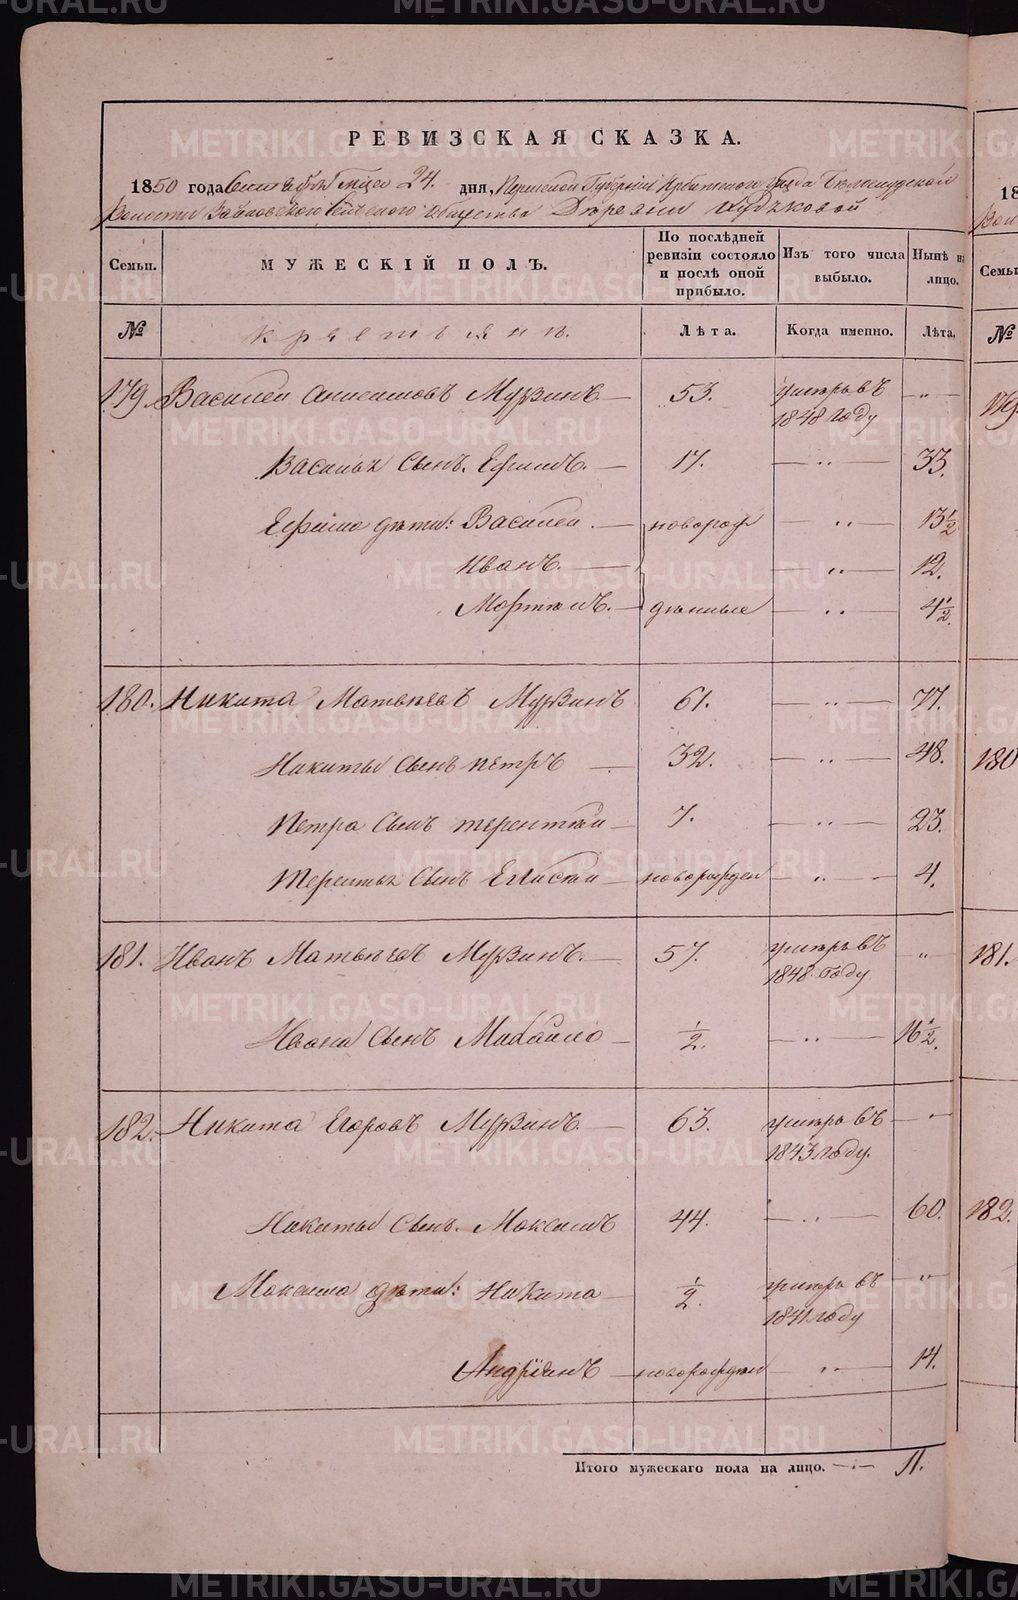 РЕВИЗСКАЯ СКАЗКА.
1850 года Сентября мца 24. дня, Пермской Губернии Ирбитского уезда
Волости Зайковского Сельского общества Деревни
Семьи.
МУЖЕСКІЙ ПОЛЪ.
По послѣдней ревизіи состояло и послѣ оной прибыло.
Изъ того числа выбыло.
Нынѣ на лицо.
№
крестьянъ.
Лѣта.
Когда именно.
Лѣта.
179. Василей Анисимовъ Мурзинъ — 53. умеръ въ 1848 году — „ —
Василья Сынъ. Ефимъ. — 17. — „ — 33.
Ефима дѣти: Василей. — новорож — „ — 13½
Иванъ. — — „ — 12.
Мортынъ. — денные — „ — 4½.
180. Никита Матвѣевъ Мурзинъ 61. — „ — 77.
Никиты Сынъ Петръ — 32. — „ — 48.
Петра Сынъ Терентей — 7. — „ — 23.
Терентья Сынъ — новорожден — „ — 4.
181. Иванъ Матвѣевъ Мурзинъ. — 57. умеръ въ 1848 году „
Ивана Сынъ Михайло — ½. — „ — 16½.
182. Никита Егоровъ Мурзинъ. — 63. умеръ въ 1843 году. — „
Никиты Сынъ. Моксимъ 44. — „ — 60.
Моксима дѣти: Никита — ½. умеръ въ 1841 году — „
Андріянъ — новорожден — „ — 14.
Итого мужескаго пола на лицо. — 11.
18
Вол
Семьи
№
179
180
181.
182.
METRIKI.GASO-URAL.RU